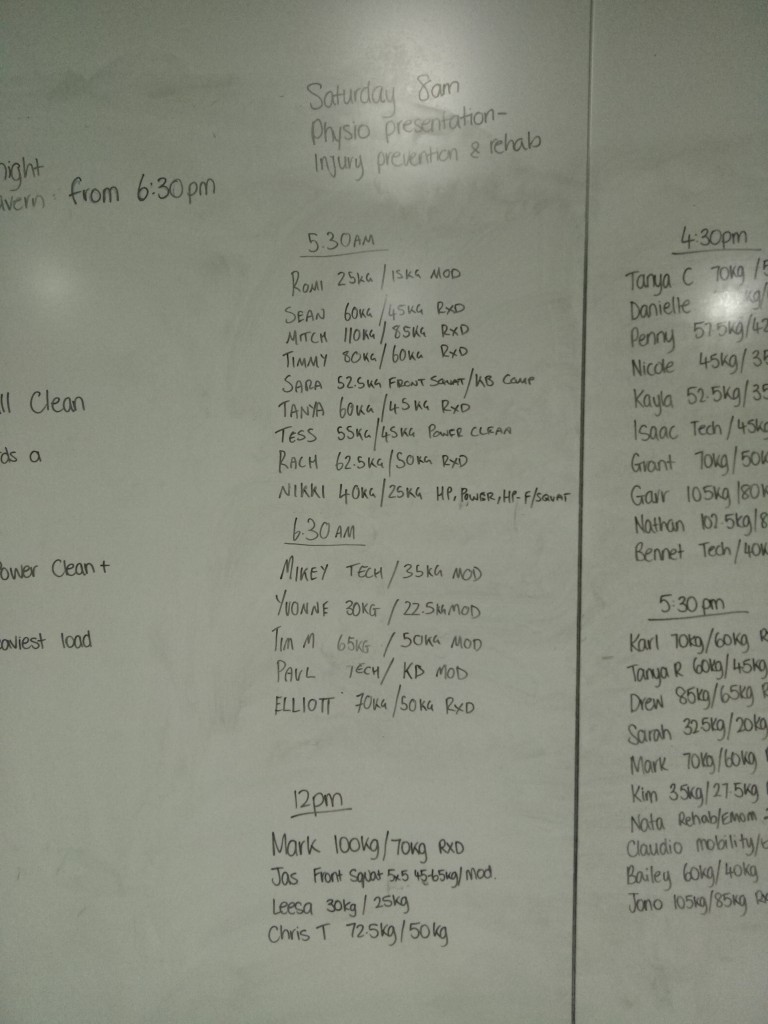 night
avern from 6:30pm
ll Clean
ds a
ower Clean +
aviest load
Saturday 8am
Physio presentation-
Injury prevention & rehab
5.30AM
ROMI 25KG/15KG MOD
SEAN 60KG/45KG RXD
MITCH 110KG/85KG RXD
TIMMY 80KG/60KG RXD
SARA 52.5KG FRONT SQUAT/KB COMP
TANYA 60KG/45KG RXD
TESS 55KG/45KG POWER CLEAN
RACH 62.5KG/50KG RXD
NIKKI 40KG/25KG HP, POWER, HP-F/SQUAT
6.30AM
MIKEY TECH/35KG MOD
YVONNE 30KG/22.5KG MOD
TIM M 65KG/50KG MOD
PAUL TECH/KB MOD
ELLIOTT 70KG/50KG RXD
12pm
Mark 100kg/70kg RXD
Jas Front Squat 5x5 45-65kg/mod.
Leesa 30kg/25kg
Chris T 72.5kg/50kg
4:30pm
Tanya C 70kg/5
Danielle
Penny 57.5kg/42
Nicole 45kg/35
Kayla 52.5kg/35
Isaac Tech/45kg
Grant 70kg/50k
Garr 105kg/80k
Nathan 102.5kg/8
Bennet Tech/40k
5:30pm
Karl 70kg/60kg R
Tanya R 60kg/45kg
Drew 85kg/65kg R
Sarah 32.5kg/20kg
Mark 70kg/60kg
Kim 35kg/27.5kg
Nata Rehab/Emom
Claudio mobility/
Bailey 60kg/40kg
Jono 105kg/85kg Rx